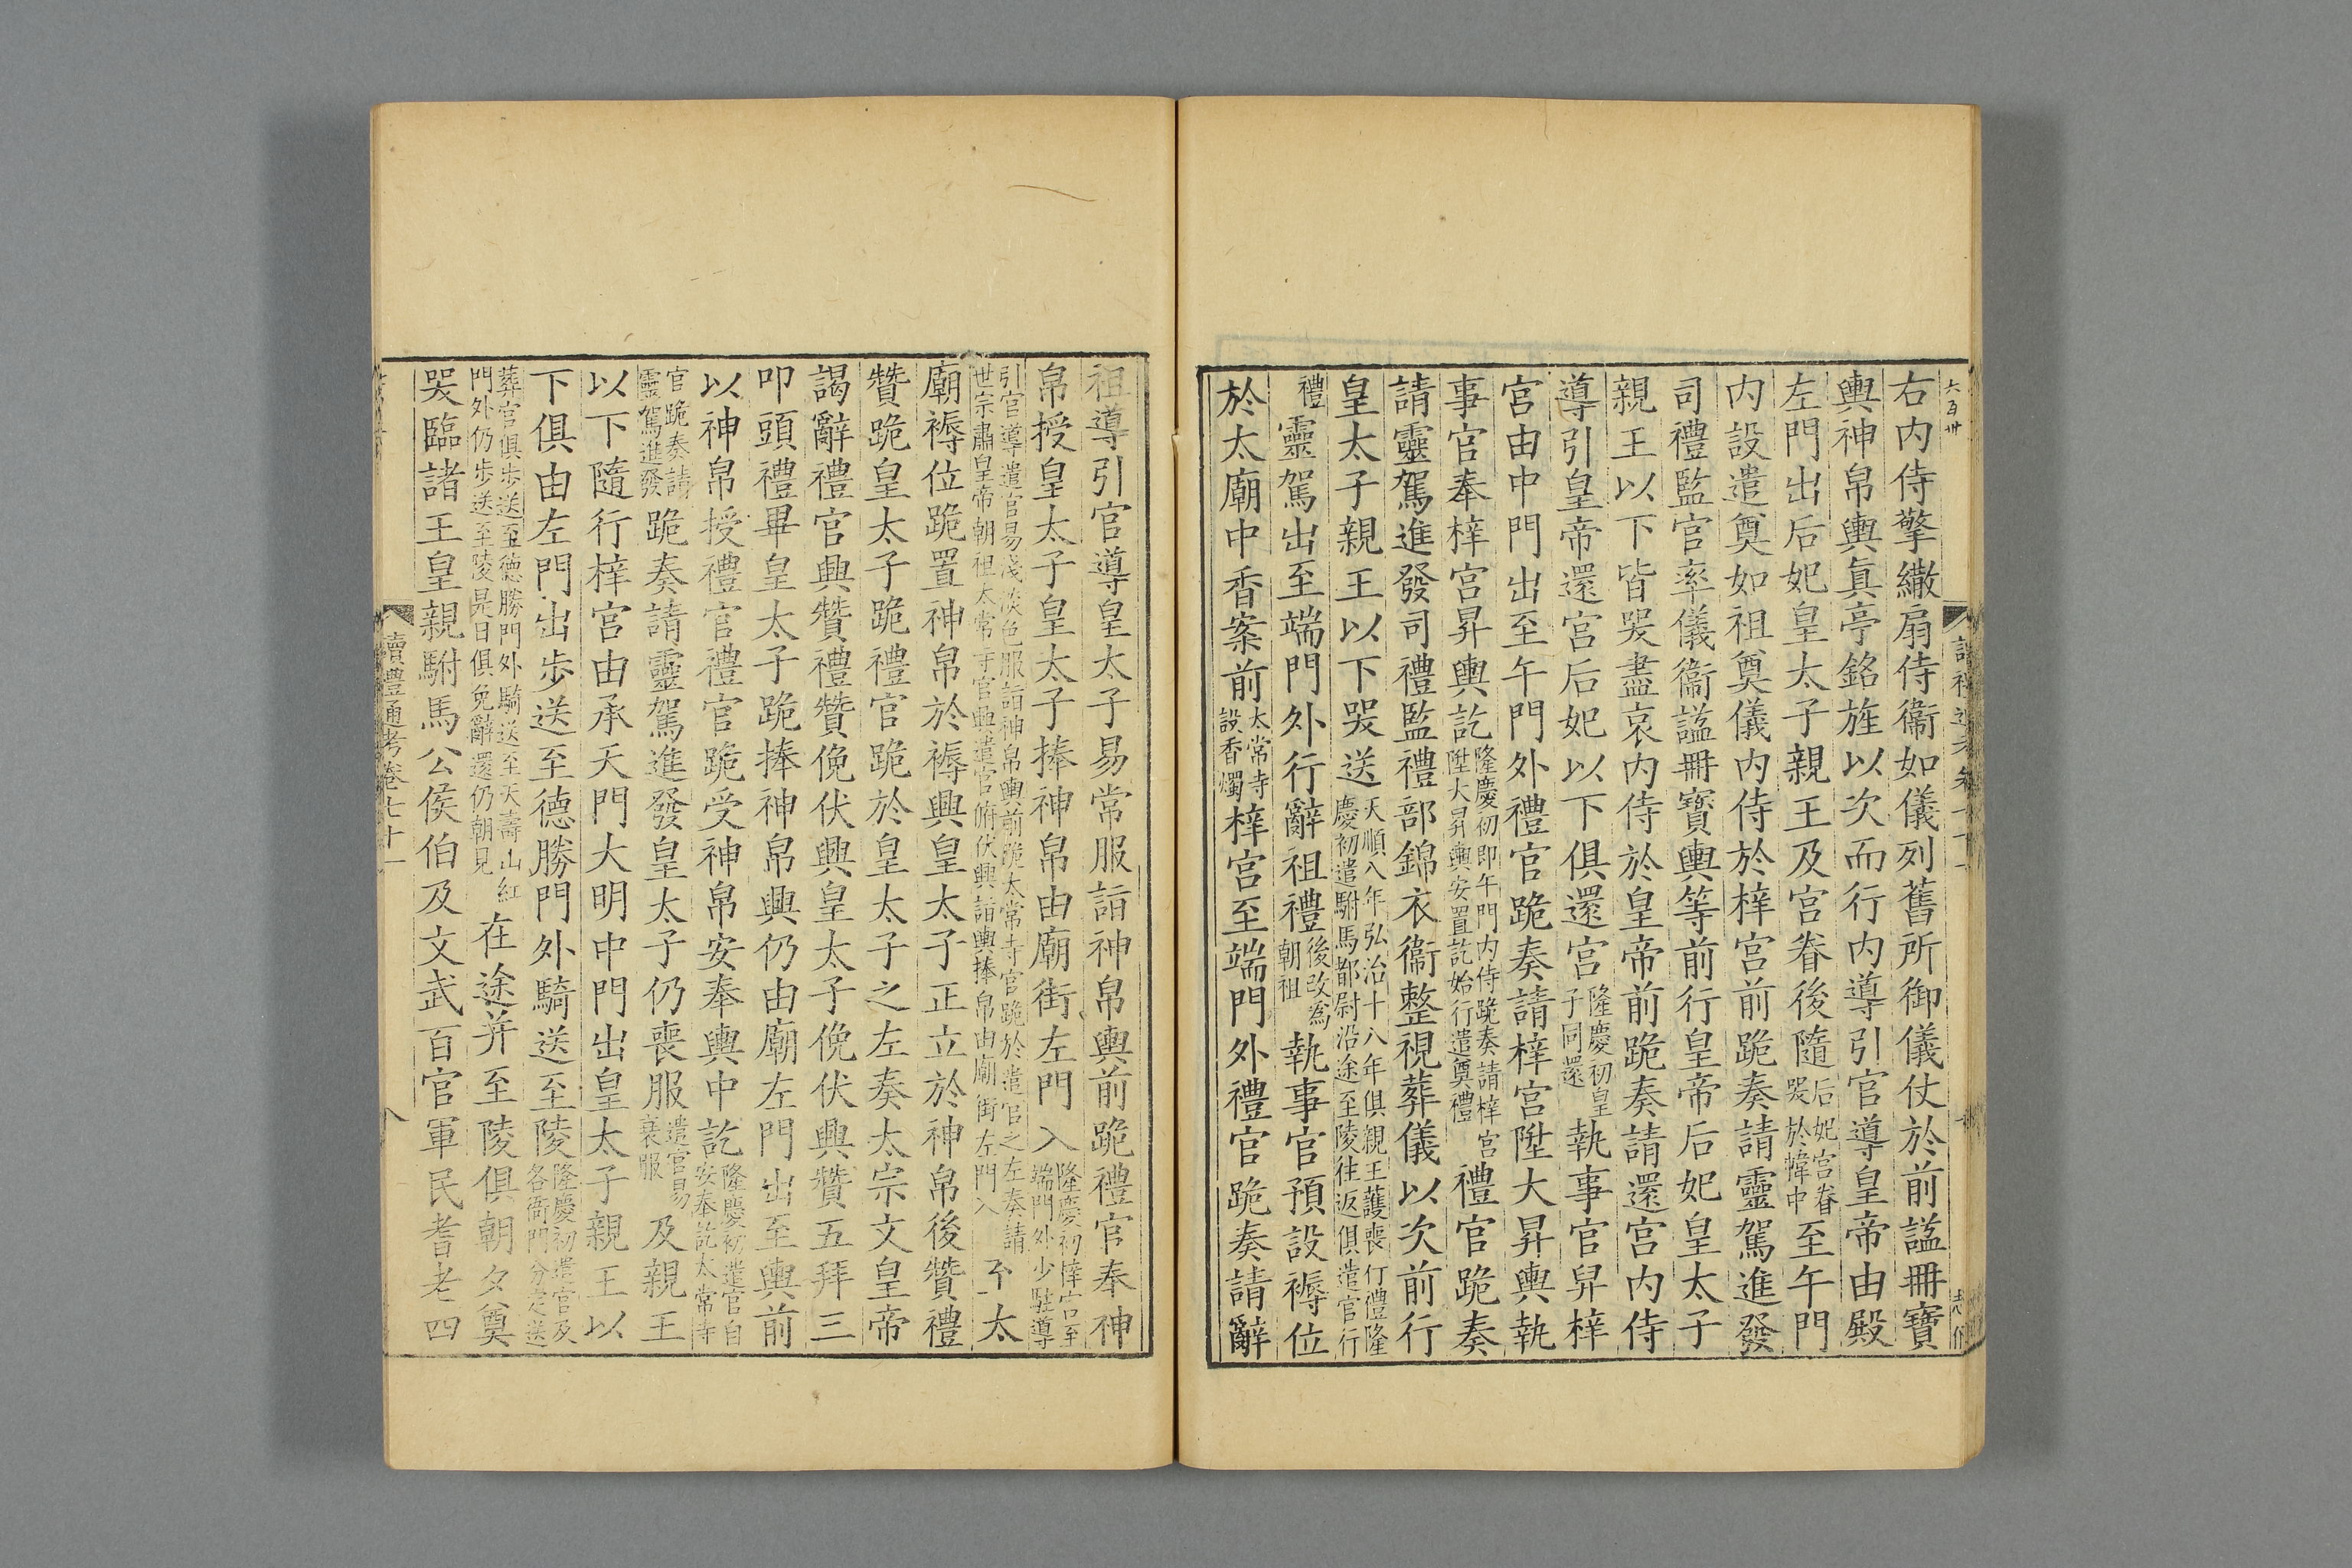 右内侍擎繖扇侍衞如儀列舊所御儀仗於前諡冊寶
輿神帛輿眞亭銘旌以次而行内導引官導皇帝由殿
左門出后妃皇太子親王及宮眷後隨后妃宮眷哭於幃中至午門
内設遣奠如祖奠儀内侍於梓宮前跪奏請靈駕進發
司禮監官率儀衞諡冊寶輿等前行皇帝后妃皇太子
親王以下皆哭盡哀内侍於皇帝前跪奏請還宮内侍
導引皇帝還宮后妃以下俱還宮隆慶初皇子同還執事官舁梓
宮由中門出至午門外禮官跪奏請梓宮陞大昇輿執
事官奉梓宮昇輿訖隆慶初即午門内侍跪奏請梓宮陞大昇輿安置訖始行遣奠禮禮官跪奏
請靈駕進發司禮監禮部錦衣衞整視葬儀以次前行
皇太子親王以下哭送天順八年弘治十八年俱親王護喪行禮隆慶初遣駙馬都尉沿途至陵往返俱遣官行
禮靈駕出至端門外行辭祖禮後改爲朝祖執事官預設褥位
於太廟中香案前太常寺設香燭梓宮至端門外禮官跪奏請辭
祖導引官導皇太子易常服詣神帛輿前跪禮官奉神
帛授皇太子皇太子捧神帛由廟街左門入隆慶初梓宮至端門外少駐導
引官導遣官易淺淡色服詣神帛輿前跪太常寺官跪於遣官之左奏請世宗肅皇帝朝祖太常寺官興遣官俯伏興詣輿捧帛由廟街左門入至太
廟褥位跪置神帛於褥興皇太子正立於神帛後贊禮
贊跪皇太子跪禮官跪於皇太子之左奏太宗文皇帝
謁辭禮官興贊禮贊俛伏興皇太子俛伏興贊五拜三
叩頭禮畢皇太子跪捧神帛興仍由廟左門出至輿前
以神帛授禮官禮官跪受神帛安奉輿中訖隆慶初遣官自安奉訖太常寺
官跪奏請靈駕進發跪奏請靈駕進發皇太子仍喪服遣官易衰服及親王
以下隨行梓宮由承天門大明中門出皇太子親王以
下俱由左門出步送至德勝門外騎送至陵隆慶初遣官及各衙門分定送
葬宮俱步送至德勝門外騎送至天壽山紅門外仍步送至陵是日俱免辭還仍朝見在途并至陵俱朝夕奠
哭臨諸王皇親駙馬公侯伯及文武百官軍民耆老四
讀禮通考卷七十一